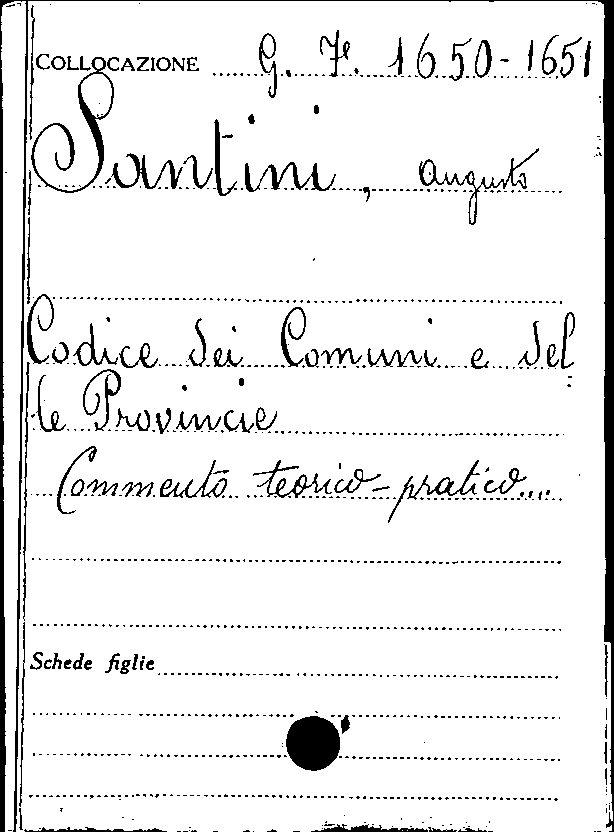 COLLOCAZIONE G. Fe. 1650-1651
Santini, Augusto
Codice dei Comuni e del=
le Provincie
Commento teorico-pratico....
Schede figlie